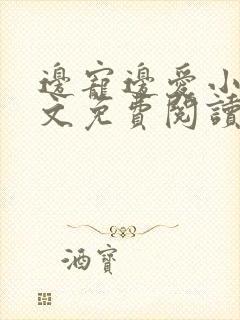 邊寵邊愛小
文免費閱讀
酒寶